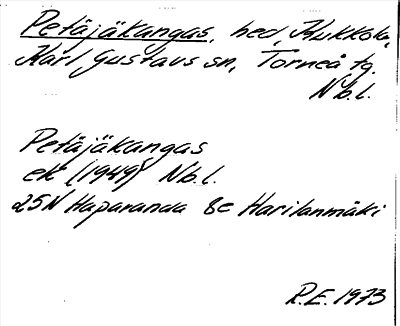 Petäjäkangas, hed, Kukkola,
Karl Gustavs sn, Torneå tg.
Nb.l.
Petäjäkangas
ek (1949) Nb.l.
25N Haparanda 8e Harilanmäki
R.E. 1973